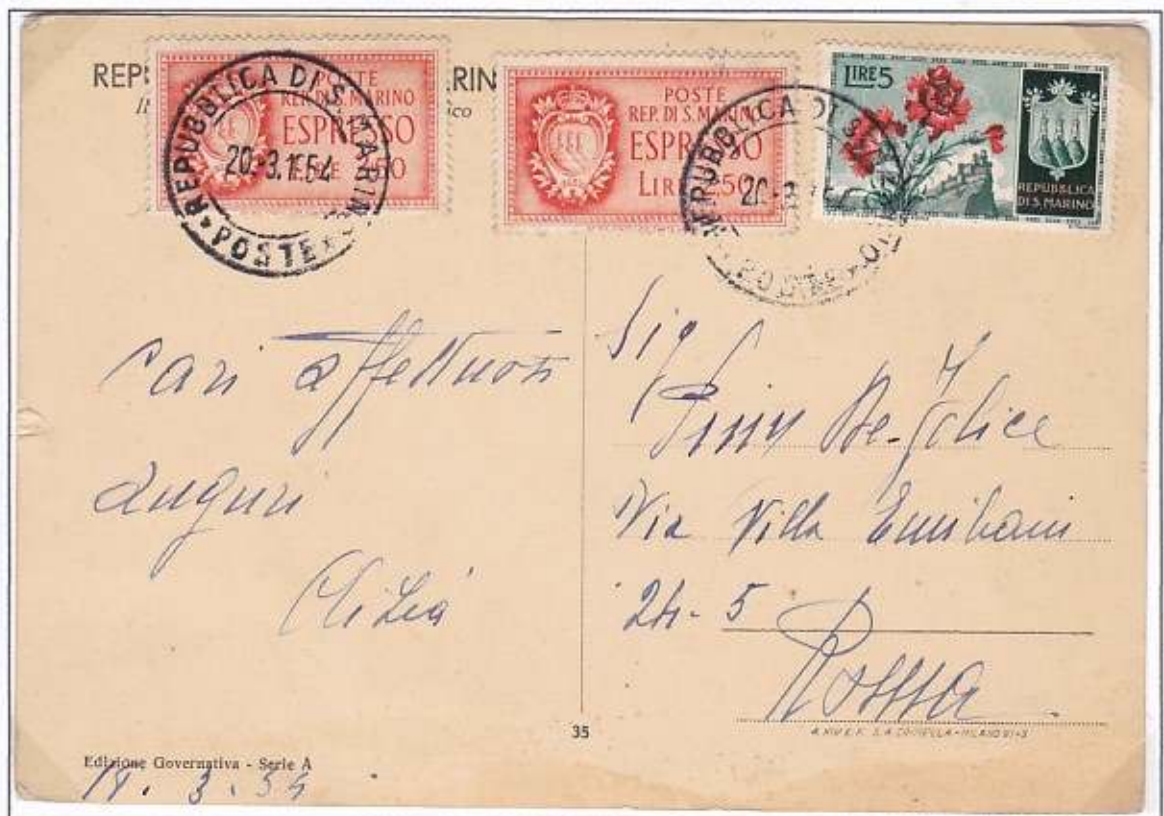 REP MARIN
POSTE
REP. DI S. MARINO
ESPRESSO
LIRE 2.50
REPUBBLICA DI S. MARINO
20.3.1954
POSTE
POSTE
REP. DI S. MARINO
ESPRESSO
LIRE 2.50
REPUBBLICA DI S.
20.3
LIRE 5
REPUBBLICA
DI S. MARINO
Cari affettuosi
auguri
Clelia
Sig
De Felice
Via Villa Emiliani
24-5
Roma
35
Edizione Governativa - Serie A
3.54